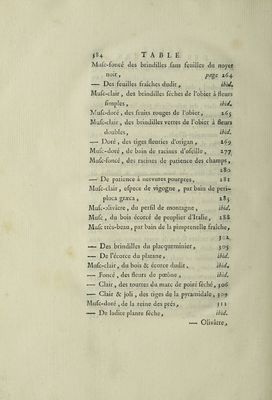 384 TABLE
Musc-foncé des brindilles sans feuilles du noyer
noir, page 264
— Des feuilles fraîches dudit, ibid.
Musc-clair, des brindilles sèches de l'obier à fleurs
simples, ibid.
Musc-doré, des fruits rouges de l'obier, 265
Musc-clair, des brindilles vertes de l'obier à fleurs
doubles, ibid.
— Doré, des tiges fleuries d'origan, 269
Musc-doré, de bain de racines d'oseille, 277
Musc-foncé, des racines de patience des champs,
280
— De patience à nervures pourpres, 281
Musc-clair, espece de vigogne, par bain de peri-
ploca græca, 285
Musc-olivâtre, du persil de montagne, ibid.
Musc, du bois écorcé de peuplier d'Italie, 288
Musc très-beau, par bain de la pimprenelle fraîche,
302
— Des brindilles du placqueminier, 305
— De l'écorce du platane, ibid.
Musc-clair, du bois & écorce dudit, ibid.
— Foncé, des fleurs de poëme, ibid.
— Clair, des tourtes du marc de poiré séché, 306
— Clair & joli, des tiges de la pyramidale, 309
Musc-doré, de la reine des prés, 311
— De ladite plante sèche, ibid.
— Olivâtre,